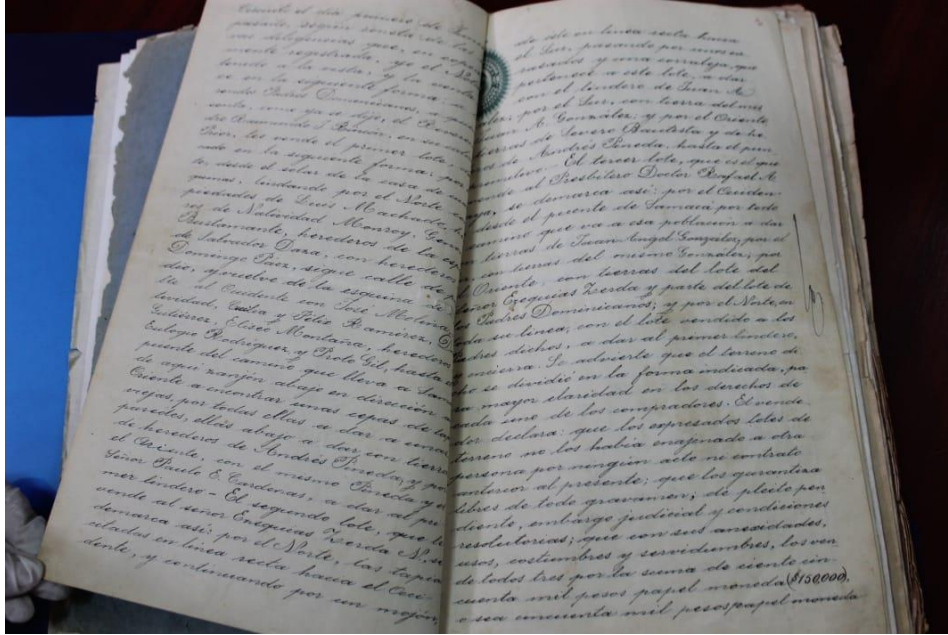 pasado, según consta de las
vas diligencias que, en copia
mente registrada, yo el Nota
tenido a la vista, y la venta
ce en la siguiente forma: a
rendos Padres Dominicanos,
venta, como ya se dijo, el Reveren
dro Raimundo J. Pinzón, en su
Prior, les vende el primer lote,
nado en la siguiente forma: por
te, desde el solar de la casa de
quinas, lindando por el Norte
piedades de Luis Machado,
ros de Natividad Monroy,
Bustamante, herederos de la
de Salvador Daza, con herederos
Domingo Páez, sigue calle de
dio, y vuelve de la esquina
lle al Occidente con José Molina
tividad, Emilia y Félix Ramírez,
Gutiérrez, Eliseo Montaña, herederos
Eulogio Rodríguez, y Proto Gil, hasta el
puente del camino que lleva a Sam
de aquí zanjón abajo en dirección
Oriente a encontrar unas cepas de
viejas, por todas ellas a dar a unas
paredes, ellas abajo a dar con tierra
de herederos de Andrés Pineda, y por
el Oriente, con el mismo Pineda y el
Señor Paulo E. Cárdenas, a dar al pri
mer lindero - El segundo lote, que le
vende al señor Ezequías Zerda N., se
demarca así: por el Norte, las tapia
das en línea recta hacia el Occi
dente, y continuando por un mojón,
de éste en línea recta hacia
el Sur, pasando por unos
y una corraleja, que
pertenece a este lote, a dar
con el lindero de Juan A.
por el Sur, con tierra del mis
A. González; y por el Oriente
tierras de Severo Bautista y de he
de Andrés Pineda, hasta el pun
El tercer lote, que es el que
al Presbítero Doctor Rafael A.
se demarca así: por el Occiden
desde el puente de Samacá por todo
camino que va a esa población a dar
tierras de Juan Angel González; por el
con tierras del mismo González; por
Oriente con tierras del lote del
Ezequías Zerda y parte del lote de
los Padres Dominicanos; y por el Norte, en
toda su línea, con el lote vendido a los
Padres dichos, a dar al primer lindero,
Se advierte que el terreno di
cho se dividió en la forma indicada, pa
ra mayor claridad en los derechos de
cada uno de los compradores. El vende
dor declara: que los expresados lotes de
terreno no los había enajenado a otra
persona por ningún acto ni contrato
anterior al presente; que los garantiza
libres de todo gravamen; de pleito pen
diente, embargo judicial y condiciones
resolutorias; que con sus anexidades,
usos, costumbres y servidumbres, los ven
de todos tres por la suma de ciento cin
cuenta mil pesos papel moneda ($150,000),
o sea cincuenta mil pesos papel moneda